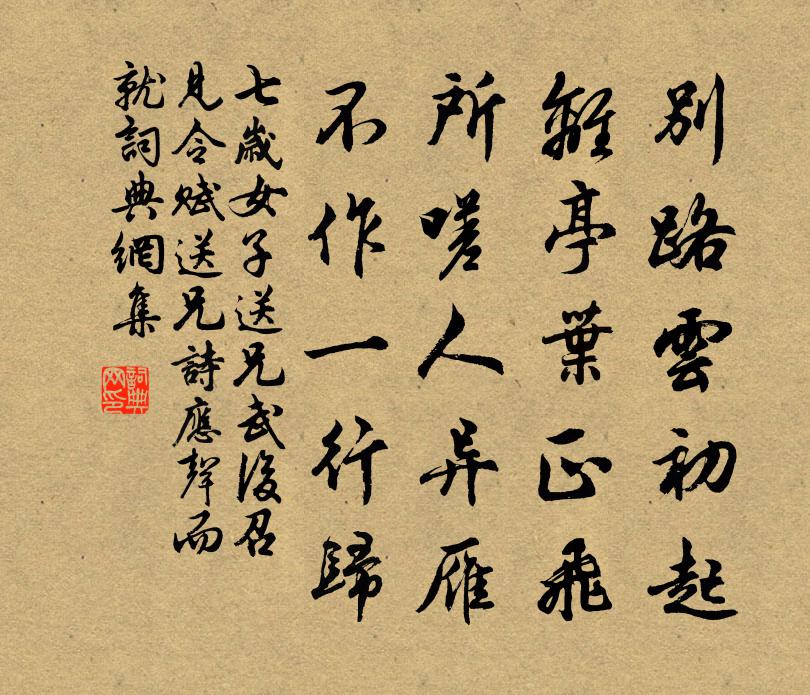 別路雲初起
離亭葉正飛
所嗟人异雁
不作一行歸
七歲女子送兄武後召
見令賦送兄詩應聲而
就詞典網集
詞典
网印